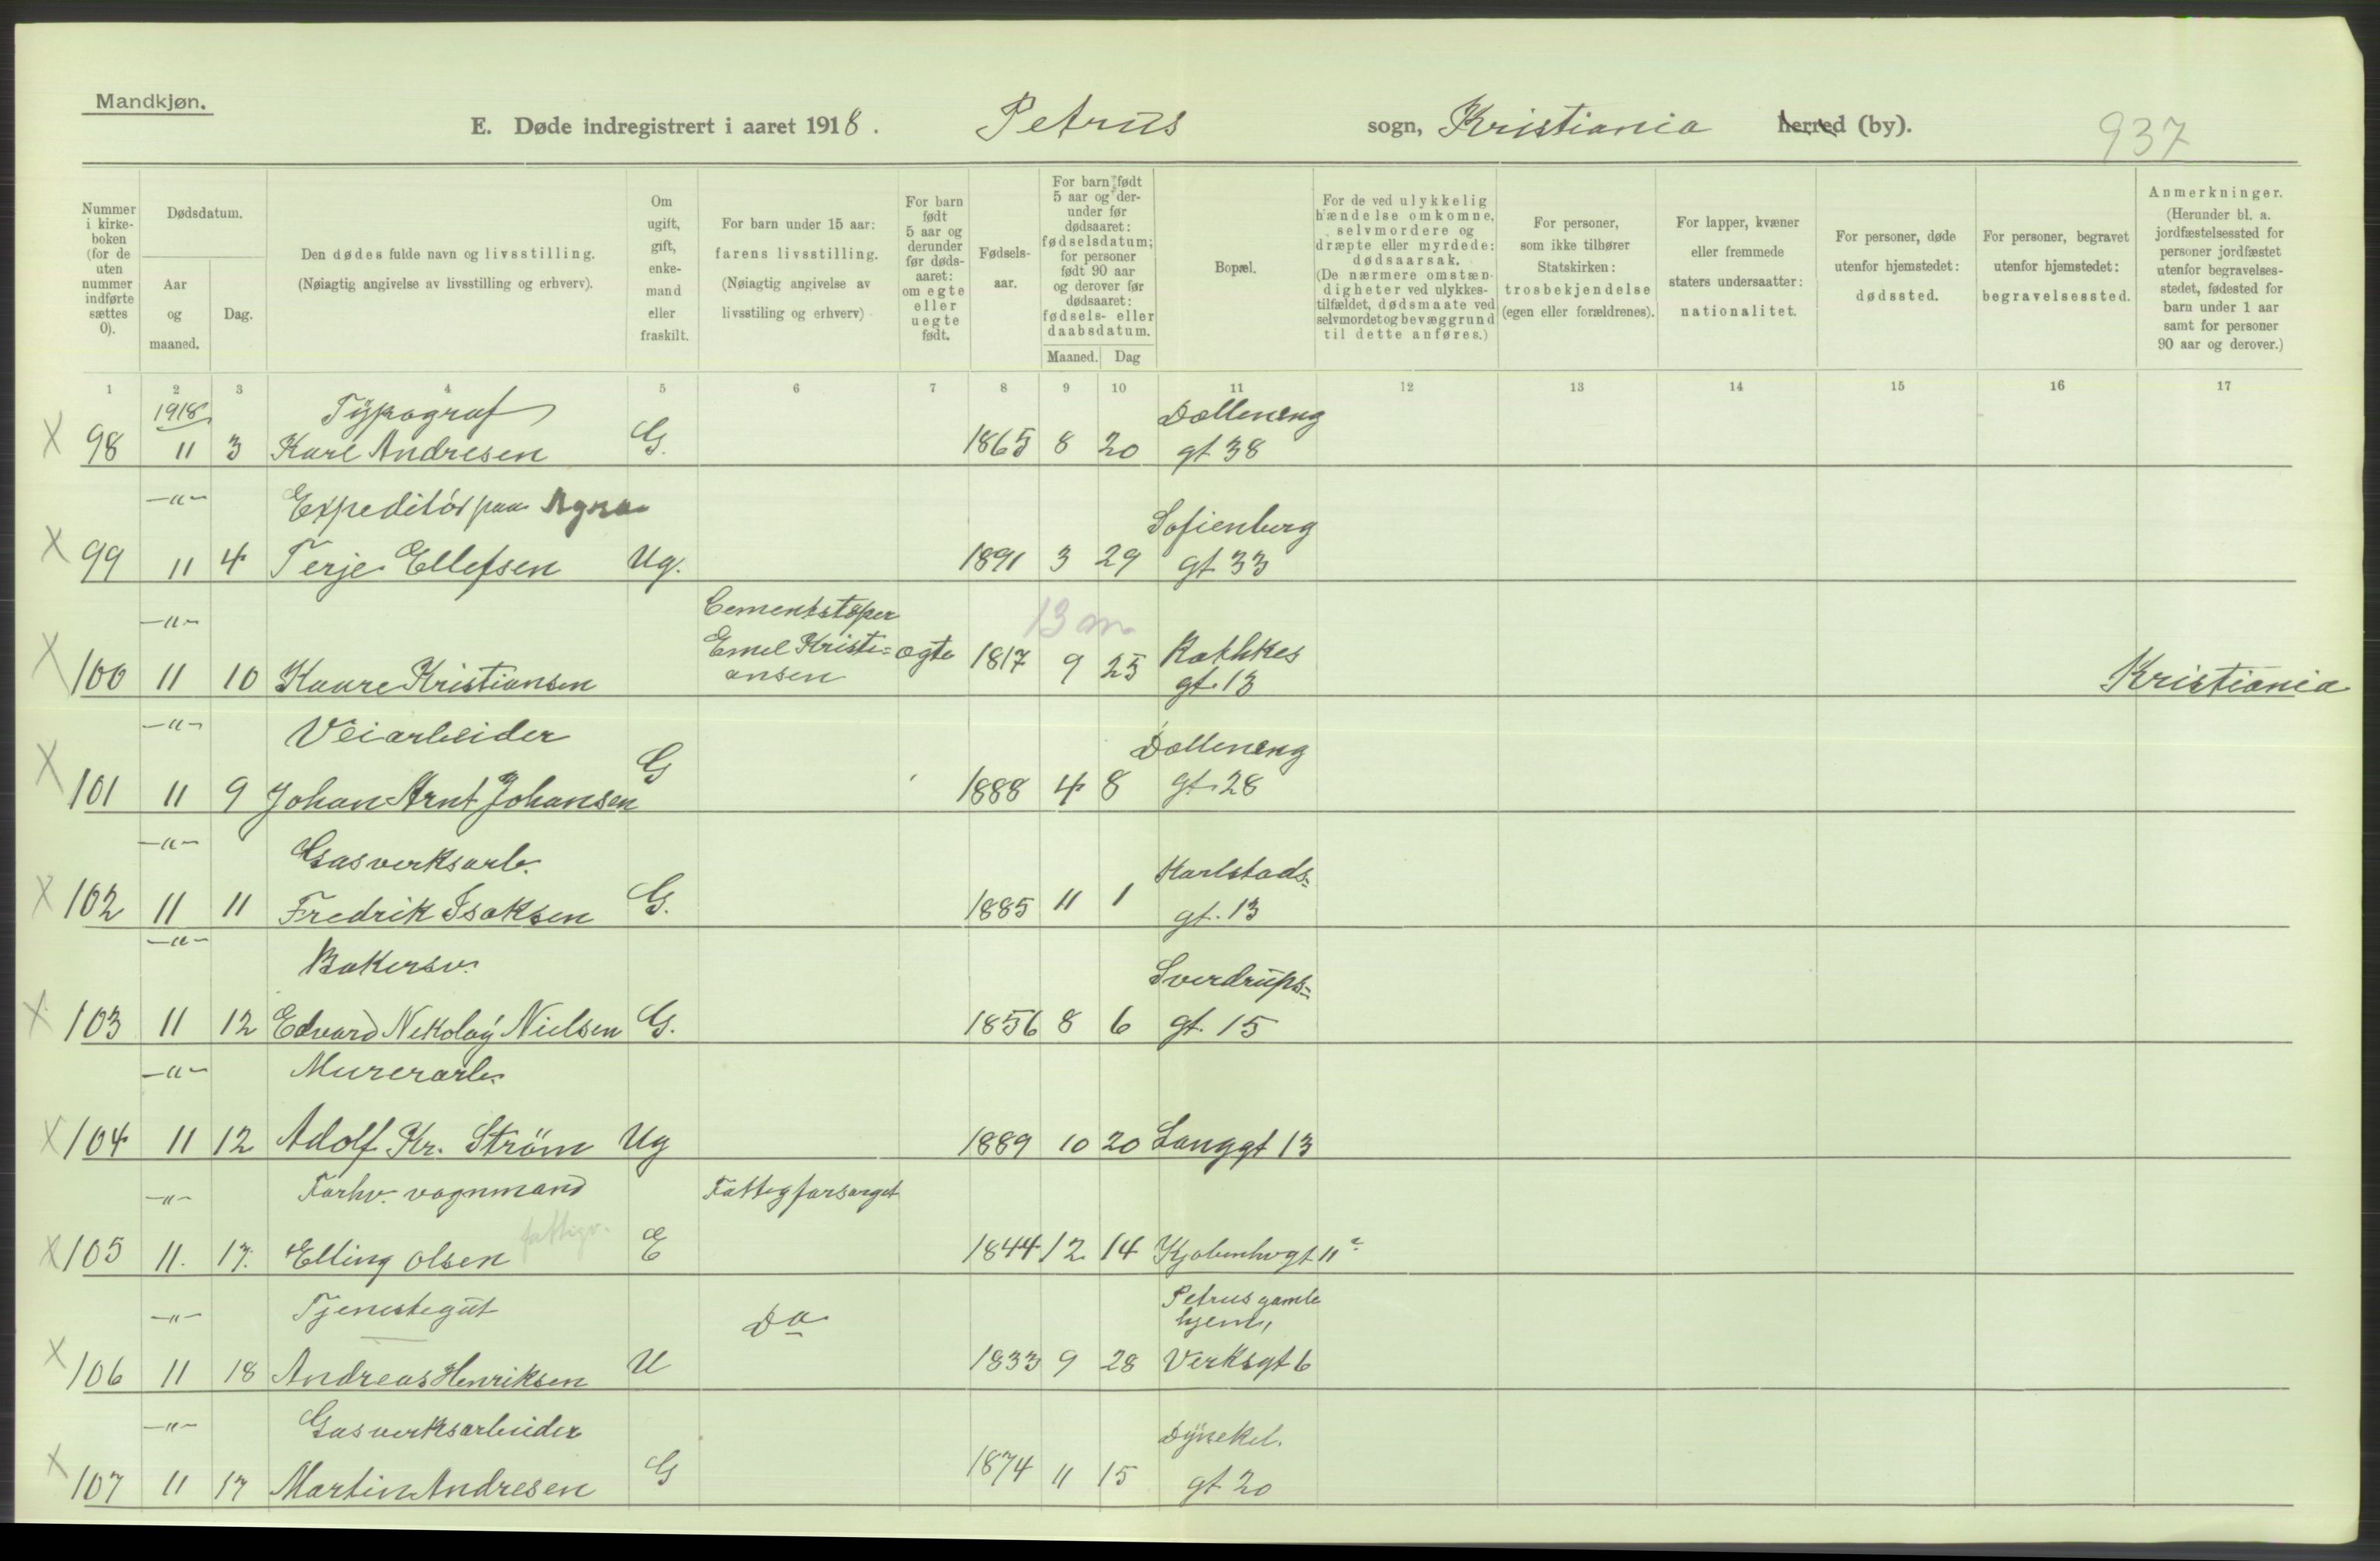 Mandkjøn.
E. Døde indregistrert i aaret 1918. Petrus sogn, Kristiania herred (by). 937
Nummer i kirkeboken (for de uten nummer indførte sættes 0).
Dødsdatum.
Aar og maaned.
Dag.
Den dødes fulde navn og livsstilling.
(Nøiagtig angivelse av livsstilling og erhverv).
Om ugift, gift, enkemand eller fraskilt.
For barn under 15 aar: farens livsstilling.
(Nøiagtig angivelse av livsstiling og erhverv)
For barn født 5 aar og derunder før dødsaaret: om egte eller uegte født.
Fødselsaar.
For barn født 5 aar og derunder før dødsaaret: fødselsdatum; for personer født 90 aar og derover før dødsaaret: fødsels- eller daabsdatum.
Maaned. Dag
Bopæl.
For de ved ulykkelig hændelse omkomne, selvmordere og dræpte eller myrdede: dødsaarsak.
(De nærmere omstændigheter ved ulykkestilfældet, dødsmaate ved selvmordet og bevæggrund til dette anføres.)
For personer, som ikke tilhører Statskirken: trosbekjendelse (egen eller forældrenes).
For lapper, kvæner eller fremmede staters undersaatter: nationalitet.
For personer, døde utenfor hjemstedet: dødssted.
For personer, begravet utenfor hjemstedet: begravelsessted.
Anmerkninger.
(Herunder bl. a. jordfæstelsessted for personer jordfæstet utenfor begravelsesstedet, fødested for barn under 1 aar samt for personer 90 aar og derover.)
1 2 3 4 5 6 7 8 9 10 11 12 13 14 15 16 17
1918 Typograf Dælleneng
X 98 11 3 Karl Andresen G. 1865 8 20 gt 38
—"— Expeditør paa Agra Sofienberg
X 99 11 4 Terje Ellefsen Ug. 1891 3 29 gt 33
—"— Cementstøper 13 m
Emil Kristi= ægte Rathkes
X 100 11 10 Kaare Kristiansen ansen 1817 9 25 gt. 13 Kristiania
—"— Veiarbeider Dælleneng
X 101 11 9 Johan Arnt Johansen G 1888 4 8 gt. 28
—"— Gasverksarb. Karlstads=
X 102 11 11 Fredrik Isaksen G. 1885 11 1 gt. 13
—"— Bakersv. Sverdrups=
X 103 11 12 Edvard Nikolay Nielsen G. 1856 8 6 gt. 15
—"— Murerarb.
X 104 11 12 Adolf Kr. Strøm Ug 1889 10 20 Langgt 13
—"— Forhv. vognmand Fattigforsørget
X 105 11. 17. Elling Olsen fattigv. E 1844 12 14 Kjøbenhvgt 11
—"— Tjenestegut Do Petrus gamle
hjem,
X 106 11 18 Andreas Henriksen U 1833 9 28 Verksgt 6
—"— Gasverksarbeider Dynekil.
X 107 11 17 Martin Andresen G 1874 11 15 gt 20